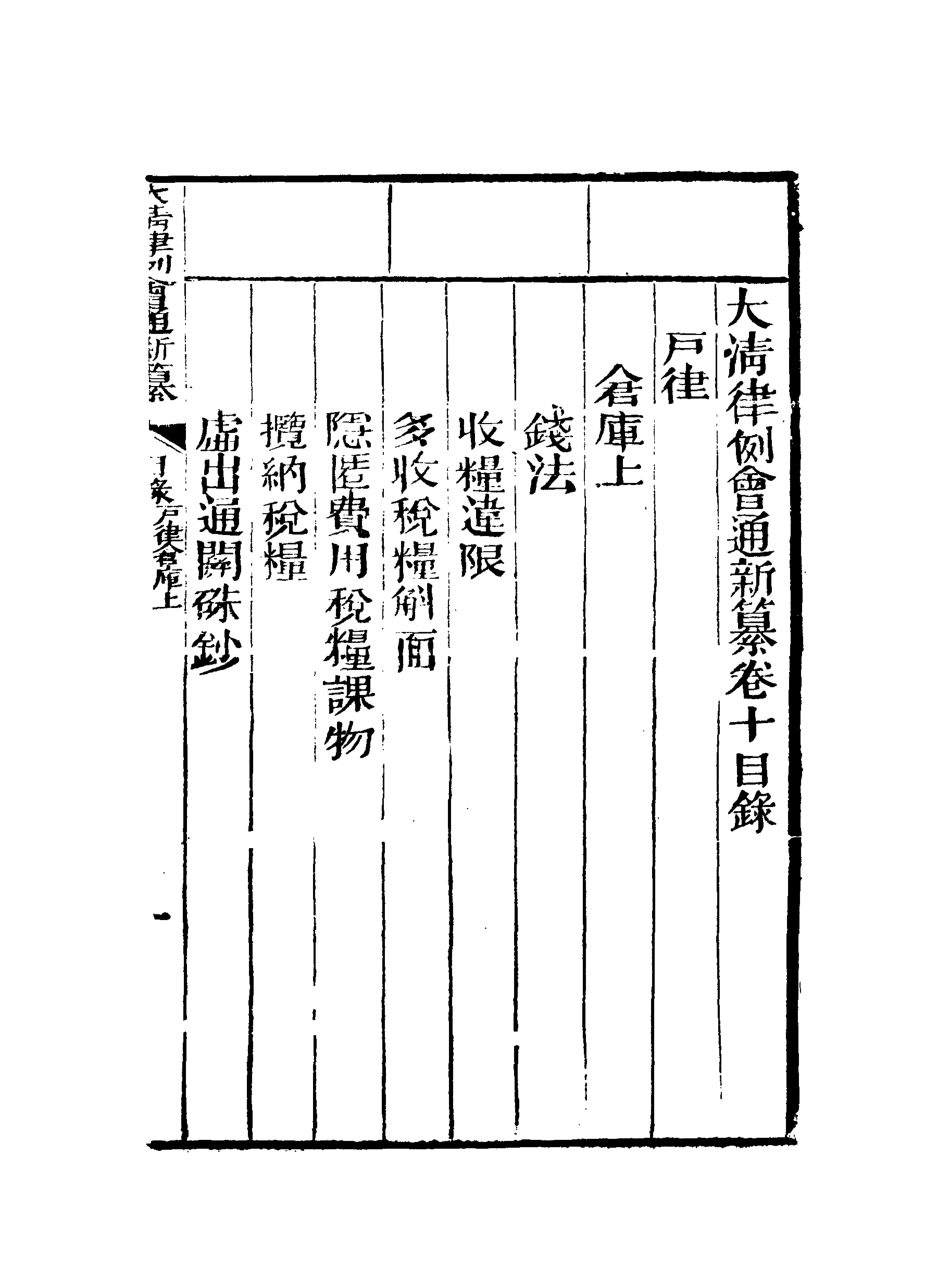 大淸律例會通新纂卷十目錄
戸律
倉庫上
錢法
收糧違限
多收稅糧斛面
隱匿費用稅糧課物
攬納稅糧
虛出通關硃鈔
大淸律例會通新纂
目錄戸律倉庫上
一